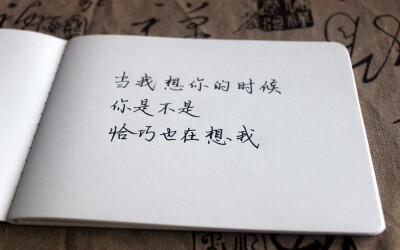 当我想你的时候
你是不是
恰巧也在想我